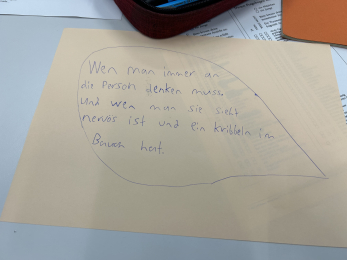 Wen man immer an
die Person denken muss,
und wen man sie sieht
nervös ist und ein kribbeln im
Bauch hat.